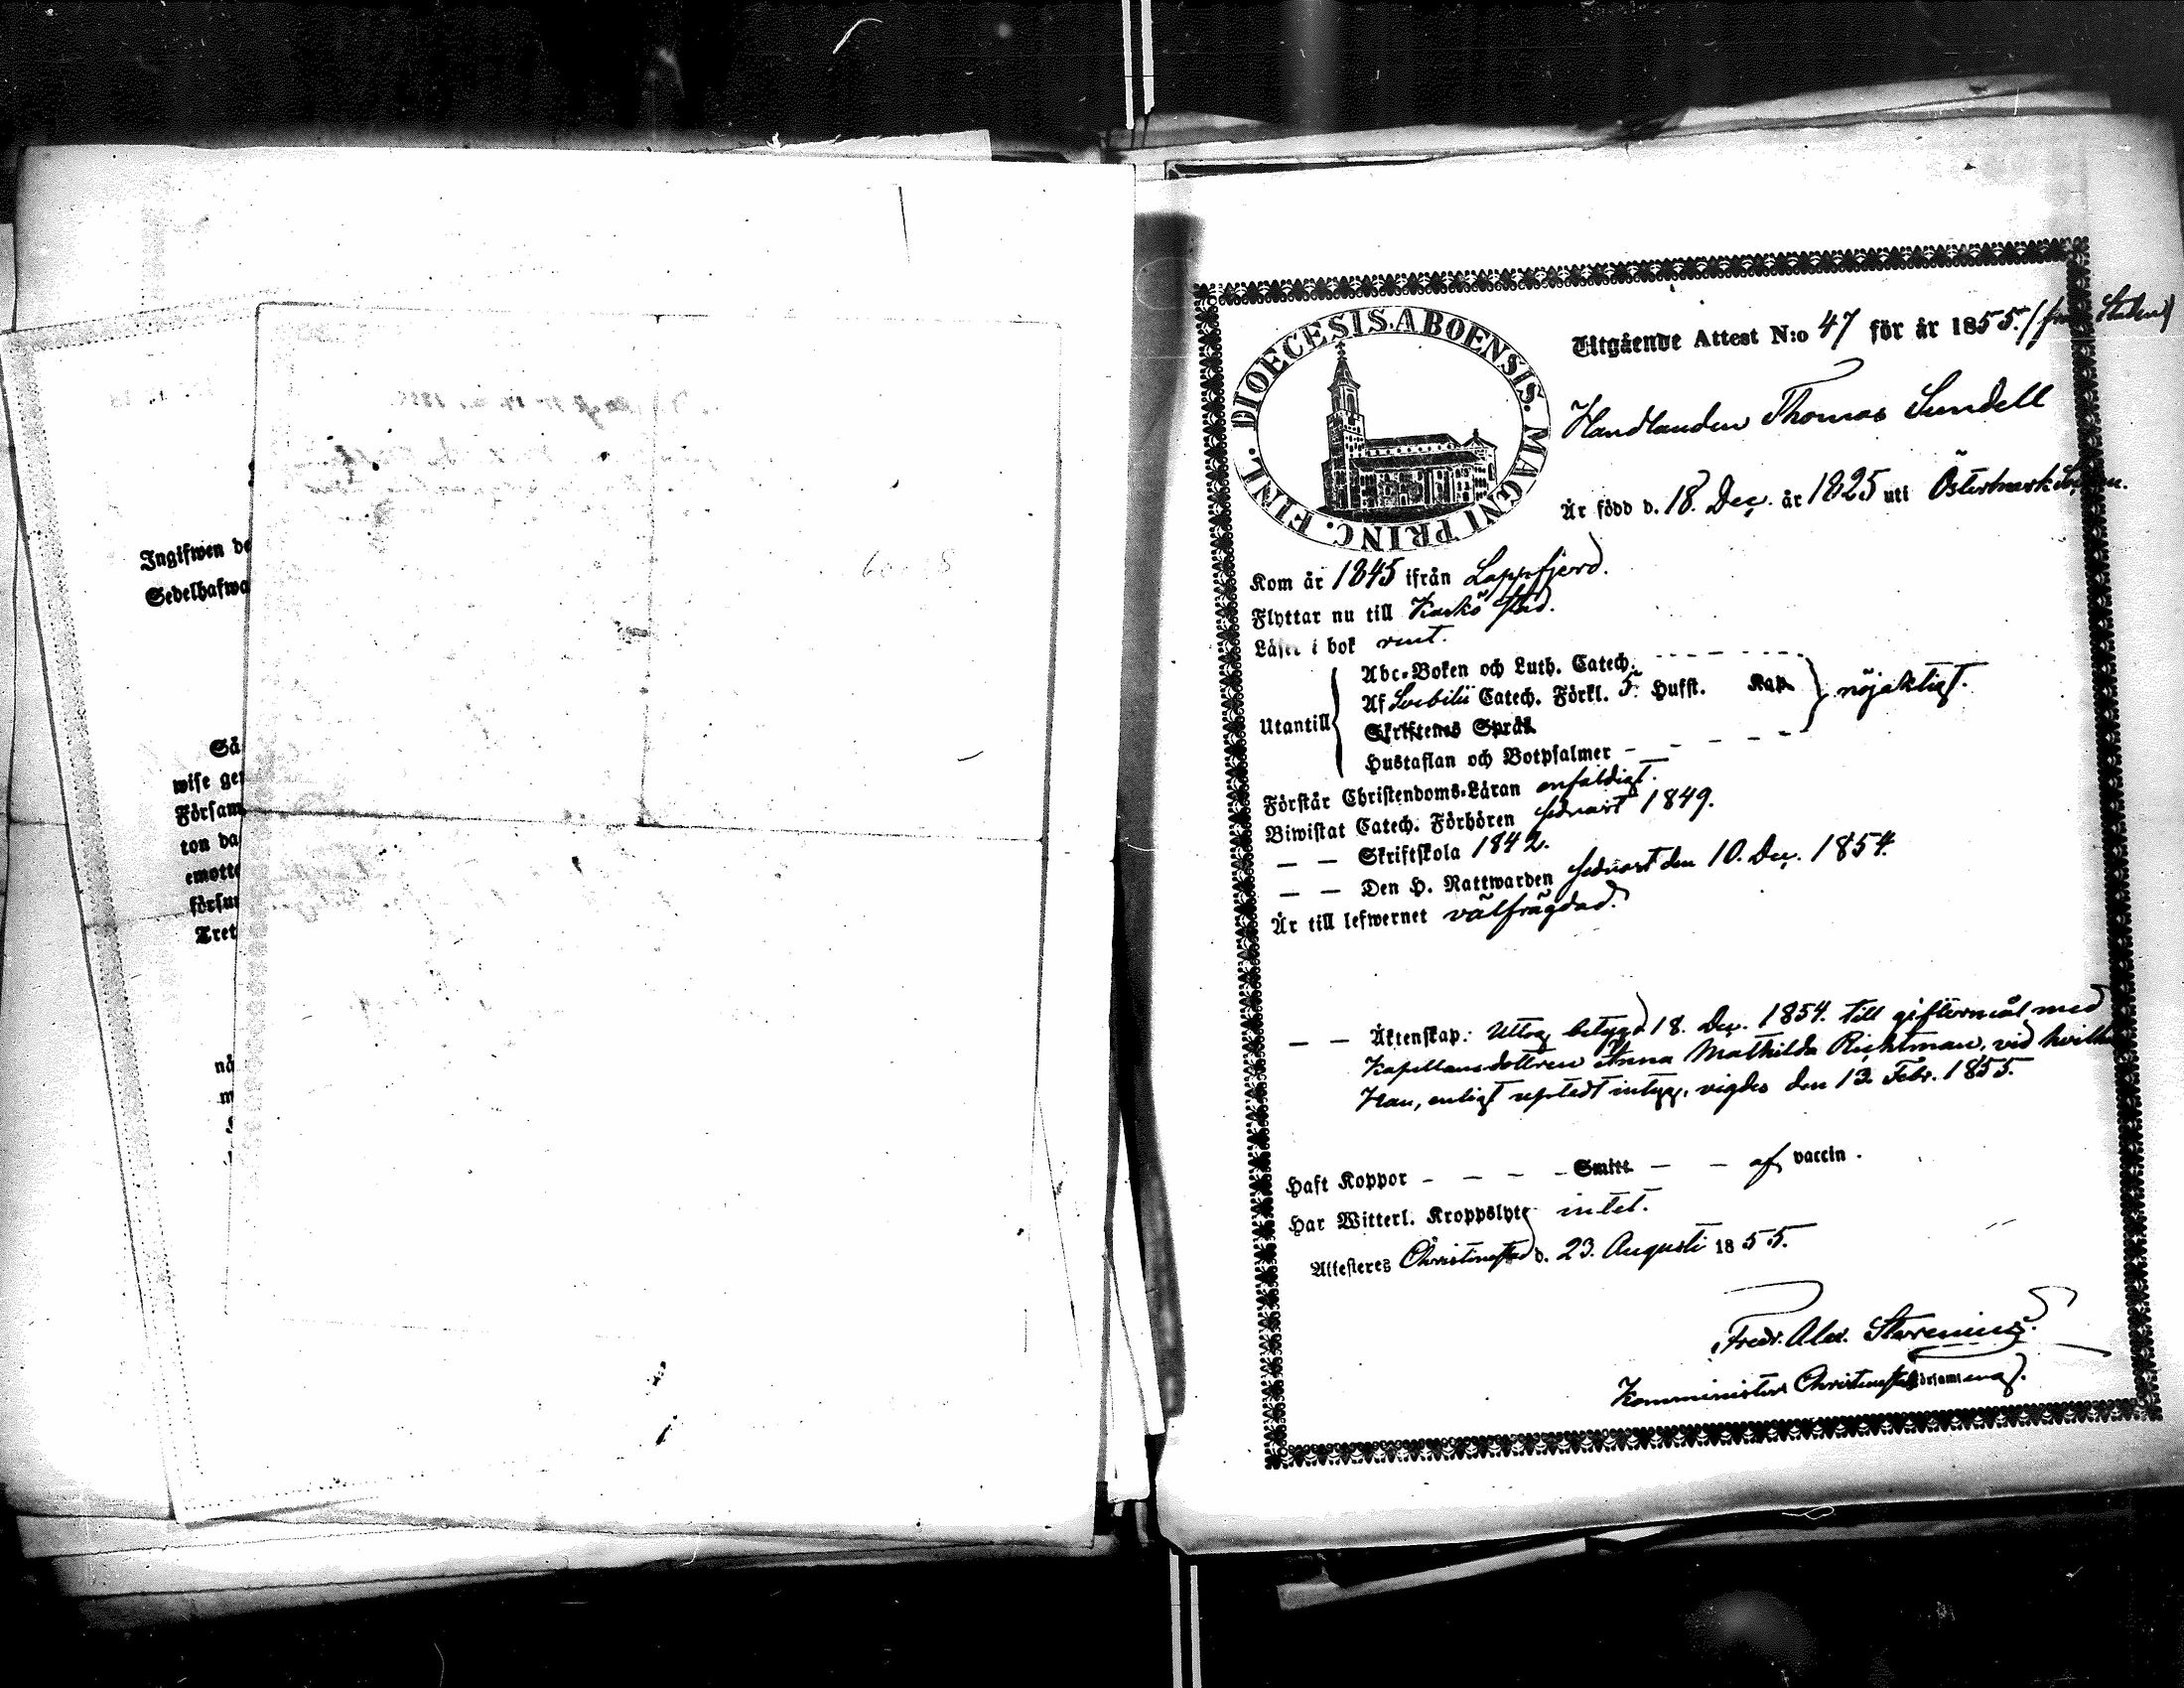 Ingifwen de
Sedelhafwa
Så
wise ge
Försam
ton da
emotte
försu
Tret
nå
m
DIOECESIS. ABOENSIS. MAGNI PRINC. FINL.
Utgående Attest N:o 47 för år 1855.
Handlanden Thomas Sundell
Är född d. 18. Dec. år 1825 uti Östermark
Kom år 1845 ifrån Lappfjerd.
Flyttar nu till Kaskö stad.
Läser i bok rent.
Abc-Boken och Luth. Catech.
Af Svebilii Catech. Förkl. 5. Hufst. Kap. nöjaktigt.
Utantill
Skriftenes Språk
Hustaflan och Botpsalmer
Förstår Christendoms-Läran enfaldigt.
Biwistat Catech. Förhören sednast 1849.
— — Skriftskola 1842.
— — Den H. Nattwarden sednast den 10. Dec. 1854.
Är till lefwernet välfrägdad.
— — Äktenskap: Uttog betyg d. 18. Dec. 1854. till giftermål med
Kapellansdottren Anna Mathilda Richtman, vid
Han, enligt intyg, vigdes den 13. Febr. 1855.
Haft Koppor - - - - Smitt - - af vaccin.
Har Witterl. Kroppslyte intet.
Attesteres Christinestad d. 23. Augusti 1855.
Fredr. Alex.
Komminister Christinestads församl.